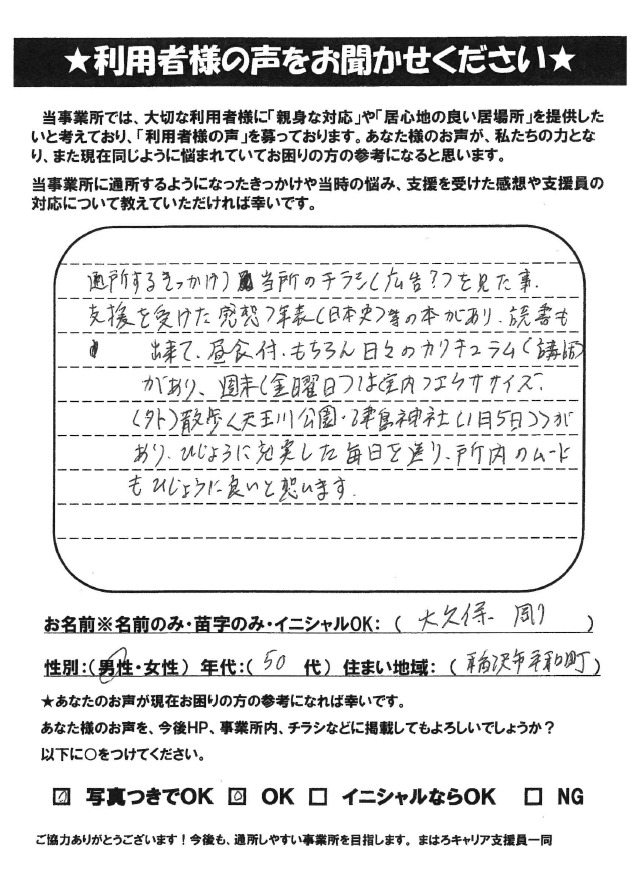 ★利用者様の声をお聞かせください★
当事業所では、大切な利用者様に「親身な対応」や「居心地の良い居場所」を提供した
いと考えており、「利用者様の声」を募っております。あなた様のお声が、私たちの力とな
り、また現在同じように悩まれていてお困りの方の参考になると思います。
当事業所に通所するようになったきっかけや当時の悩み、支援を受けた感想や支援員の
対応について教えていただければ幸いです。
通所するきっかけ)当所のチラシ(広告?)を見た事.
支援を受けた感想)年表(日本史)等の本があり、読書も
出来て、昼食付、もちろん日々のカリキュラム(講話)
があり、週末(金曜日)は(室内)エクササイズ、
(外)散歩<天王川公園・津島神社(1月5日)>が
あり、ひじょうに充実した毎日を送り、所内のムード
もひじょうに良いと想います.
お名前※名前のみ・苗字のみ・イニシャルOK:( 大久保 剛 )
性別:(男性・女性) 年代:( 50 代) 住まい地域:( 稲沢市平和町 )
★あなたのお声が現在お困りの方の参考になれば幸いです。
あなた様のお声を、今後HP、事業所内、チラシなどに掲載してもよろしいでしょうか?
以下に○をつけてください。
☑ 写真つきでOK ☑ OK □ イニシャルならOK □ NG
ご協力ありがとうございます!今後も、通所しやすい事業所を目指します。まはろキャリア支援員一同